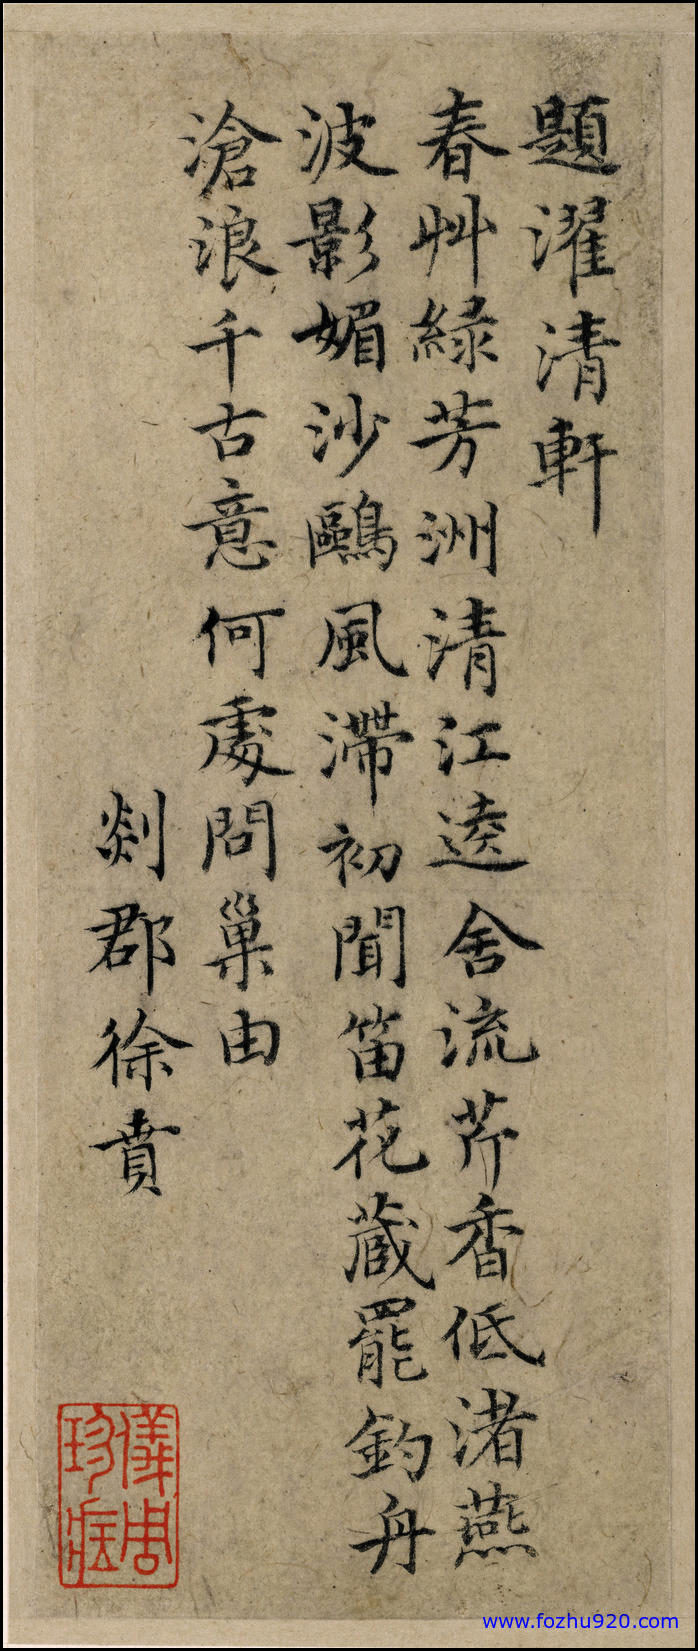 題濯清軒
春艸緑芳洲清江遶舍流芹香低渚燕
波影媚沙鷗風滯初聞笛花藏罷釣舟
滄浪千古意何處問巢由
剡郡徐賁
儀周珍藏
www.fozhu920.com